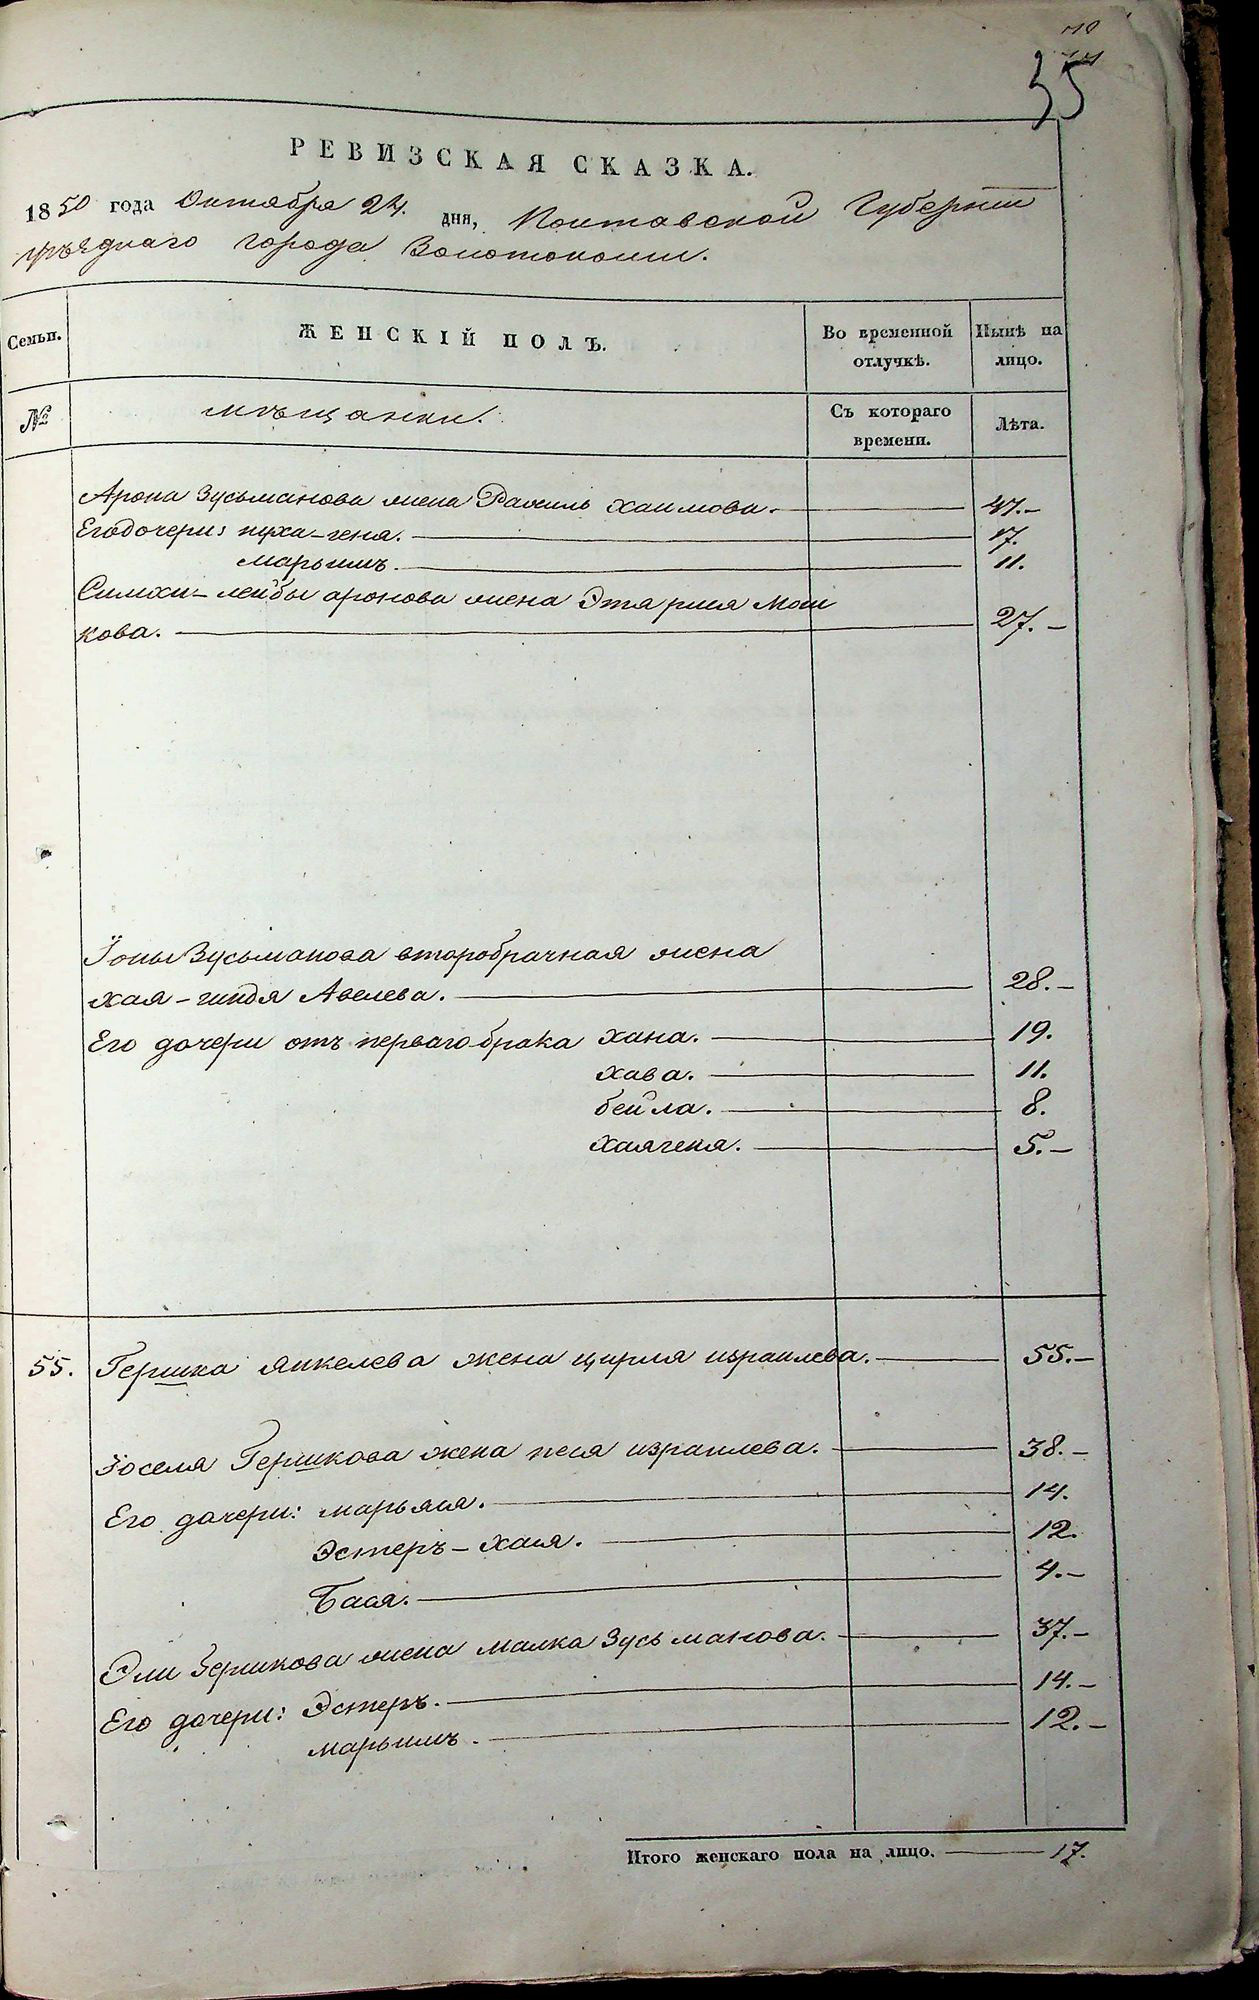 35
РЕВИЗСКАЯ СКАЗКА.
1850 года Октября 24. дня, Полтавской Губернии
уѣзднаго города Золотоноши.
Семьи. ЖЕНСКІЙ ПОЛЪ. Во временной отлучкѣ. Нынѣ на лицо.
№ мѣщанки. Съ котораго времени. Лѣта.
Арона Зусьманова жена Рахиль Хаимова. 47.
Его дочери: нуха-геня. 17.
марьимъ. 11.
Симхи-лейбы аронова жена Этя рися Мош
кова. 27.
Іоны Зусьманова второбрачная жена
хая-гиндя Авелева. 28.
Его дочери отъ перваго брака хана. 19.
хава. 11.
бейла. 8.
хаягеня. 5.
55. Гершка Янкелева жена цирля израилева. 55.
Іоселя Гершкова жена песя израилева. 38.
Его дочери: марьяся. 14.
Эстеръ-хая. 12.
Бася. 4.
Эли Гершкова жена малка Зусьманова. 37.
Его дочери: Эстеръ. 14.
марьимъ. 12.
Итого женскаго пола на лицо. 17.